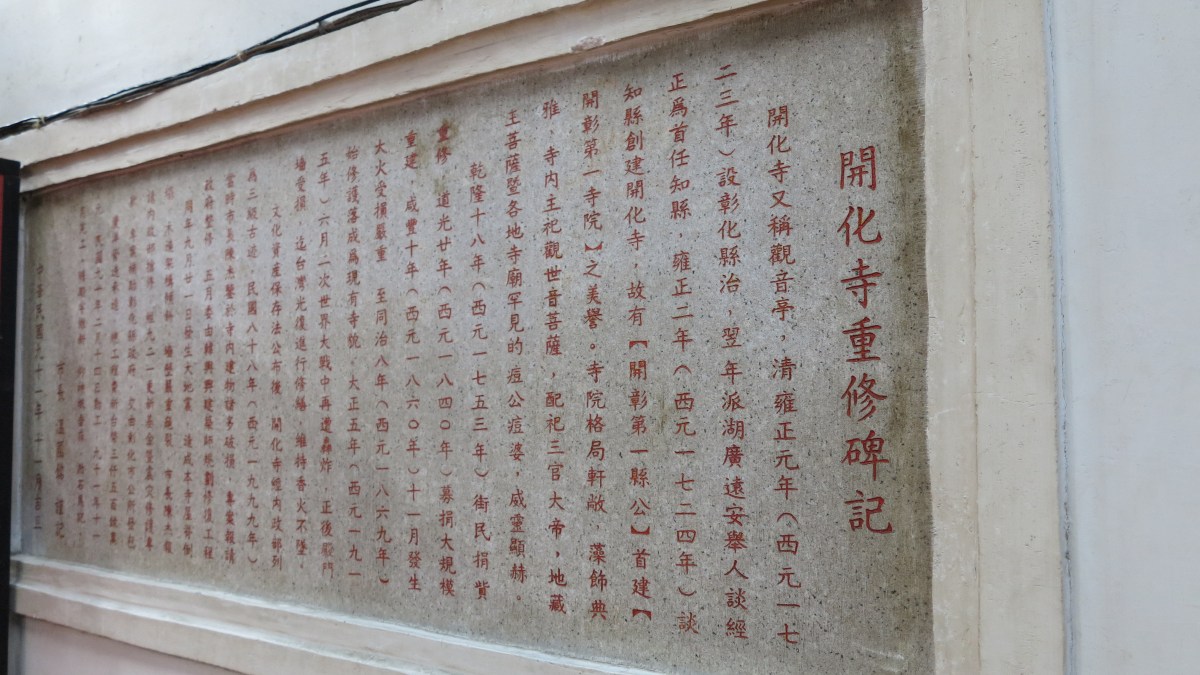 開化寺重修碑記
開化寺又稱觀音亭，清雍正元年（西元一七
二三年）設彰化縣治，翌年派湖廣遠安舉人談經
正為首任知縣，雍正二年（西元一七二四年）談
知縣創建開化寺，故有【開彰第一縣公】首建【
開彰第一寺院】之美譽。寺院格局軒敞，藻飾典
雅，寺內主祀觀世音菩薩，配祀三官大帝，地藏
王菩薩暨各地寺廟罕見的痘公痘婆，威靈顯赫。
乾隆十八年（西元一七五三年）街民捐貲
重修，道光廿年（西元一八四〇年）募捐大規模
重建，咸豐十年（西元一八六〇年）十一月發生
大火受損嚴重 至同治八年（西元一八六九年）
始修護落成為現有寺貌，大正五年（西元一九一
五年）六月二次世界大戰中再遭轟炸 正後殿門
墻受損 迄台灣光復進行修繕，維持香火不墜。
文化資產保存法公布後 開化寺經內政部列
為三級古迹，民國八十八年（西元一九九九年）
當時市長陳杰鑒於寺內建物諸多破損，專案報請
政府整修 五月委由
同年九月廿一日發生大地震，造成本寺屋脊倒
市長
中華民國九十一年十一月